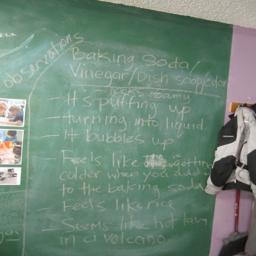 observations
Baking Soda/
Vinegar/Dish soap/color
Looks foamy
- It's puffing up
- turning into liquid
- It bubbles up
- Feels like getting
colder when you add
to the baking soda
- Feels like rice
- Seems like hot lava
in a volcano